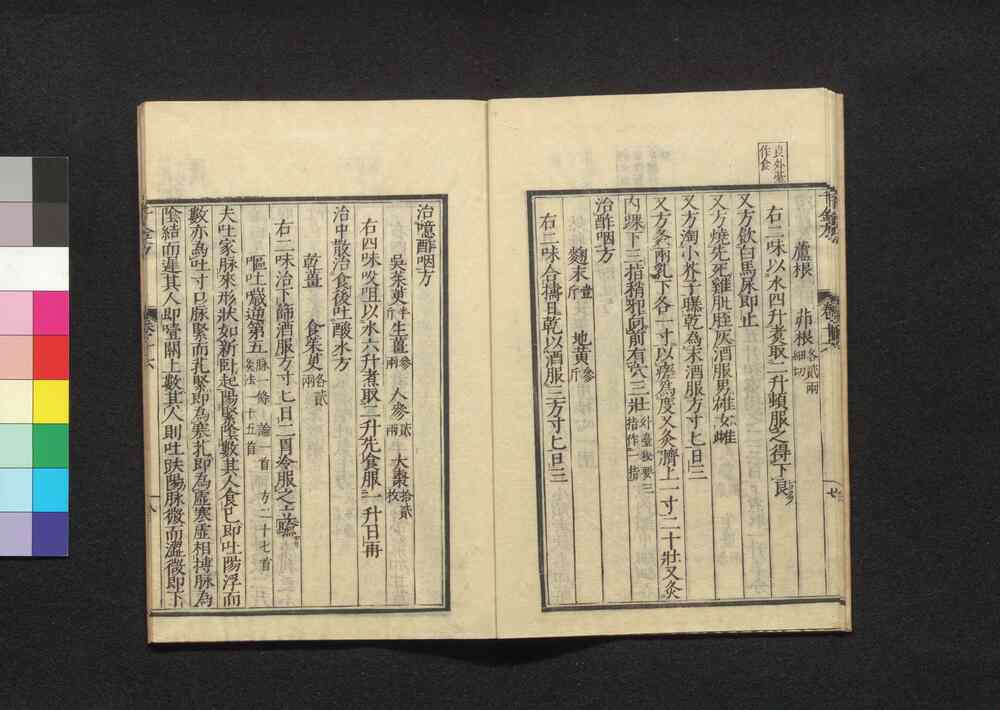 良外臺
作食
蘆根　茆根各貳兩細切
右二味以水四升煮取二升頓服之得下良
又方飲白馬尿即止
又方燒死雞肶胵灰酒服男雄女雌
又方淘小芥子曝乾為末酒服方寸匕日三
又方灸兩乳下各一寸以瘥為度又灸臍上一寸二十壯又灸
內踝下三指稍斜向前有穴三壯外臺秘要三指作一指
治酢咽方
麴末壹斤　地黃參斤
右二味合擣日乾以酒服三方寸匕日三
治噫酢咽方
吳茱萸半斤　生薑參兩　人參貳兩　大棗拾貳枚
右四味㕮咀以水六升煮取二升先食服一升日再
治中散治食後吐酸水方
乾薑　食茱萸各貳兩
右二味治下篩酒服方寸匕日二胃冷服之立驗
嘔吐噦逆第五脉一條　論一首　方二十七首　灸法一十五首
夫吐家脉來形狀如新卧起陽緊陰數其人食已即吐陽浮而
數亦為吐寸口脉緊而芤緊即為寒芤即為虛寒虛相搏脉為
陰結而遲其人即噎關上數其人則吐趺陽脉微而澀微即下
千金方
八